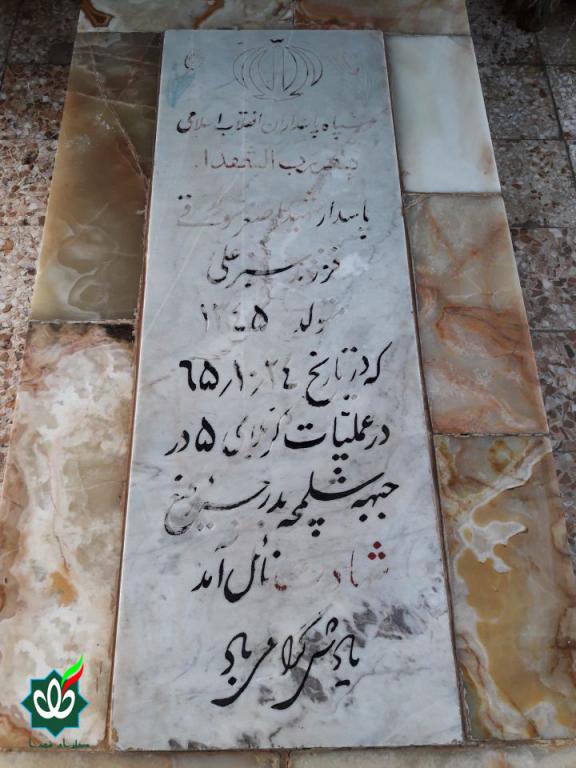 سپاه پاسداران انقلاب اسلامی
بسم رب الشهدا
پاسدار شهید
فرزند سبزعلی
متولد ۱۳۴۵
که در تاریخ ۶۵٫۱۰٫۲۴
در عملیات کربلای ۵ در
جبهه شلمچه بدرجه رفیع
شهادت نائل آمد
یادش گرامی باد